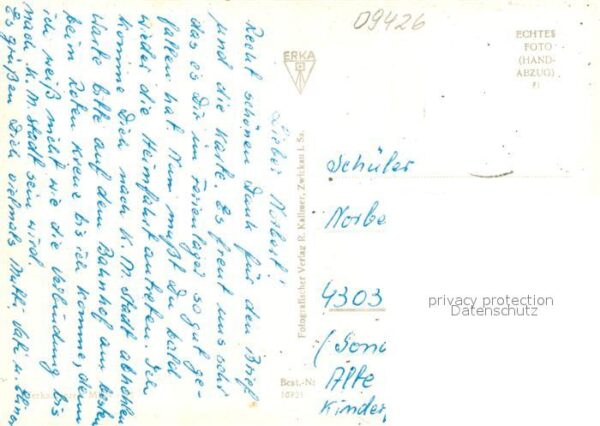 09426
ERKA
ECHTES
FOTO
(HAND-
ABZUG)
Lieber Norbert!
Recht schönen Dank für den Brief
und die Karte. Es freut uns sehr
das es Dir im Ferienlager so gut ge-
fallen hat. Nun mußt Du bald
wieder die Heimfahrt antreten. Ich
komme Dich nach K. M. Stadt abholen
Warte bitte auf dem Bahnhof am besten
beim Roten Kreuz bis ich komme, denn
ich weiß nicht wie die Verbindung bis
nach K. M. Stadt sein wird.
Es grüßen Dich vielmals Mutti, Vati u.
Fotografischer Verlag R. Kallmer, Zwickau i. Sa.
Best.-Nr.
Schüler
Norbe
4303
(Sond
Alte
Kinder
privacy protection
Datenschutz